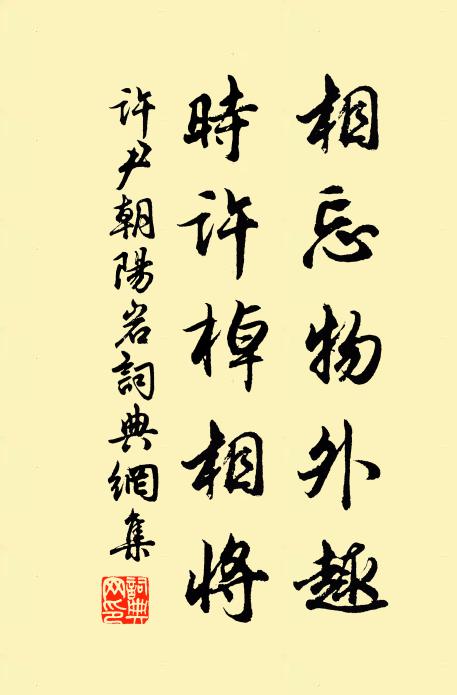 相忘物外趣
時許棹相將
許尹朝陽岩詞典網集
詞典